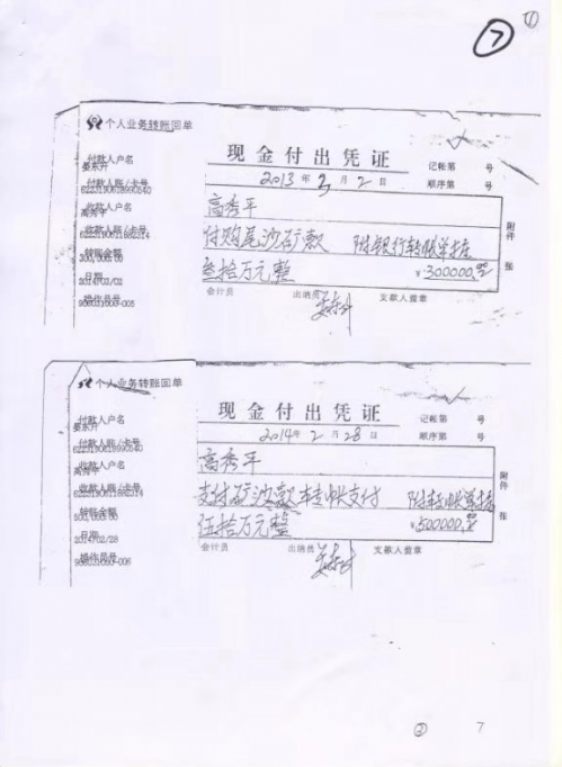 ①
⑦
个人业务转账回单
现金付出凭证
付款人户名
姜东升
记帐第 号
2013年2月2日
顺序第 号
付款人账/卡号
收款人户名
高秀平
高秀平
收款人账/卡号
付购尾沙矿款 附银行转账单据
附件 张
转账金额
300,000.00
叁拾万元整
¥300000.00
日期
2014/02/02
会计员 出纳员 姜东升 支款人盖章
操作员号
个人业务转账回单
现金付出凭证
付款人户名
姜东升
记帐第 号
2014年2月28日
顺序第 号
付款人账/卡号
收款人户名
高秀平
高秀平
收款人账/卡号
支付矿沙款 转帐支付 附转帐单据
附件 张
转账金额
500,000.00
伍拾万元整
¥500000.00
日期
2014/02/28
会计员 出纳员 姜东升 支款人盖章
操作员号
②
7